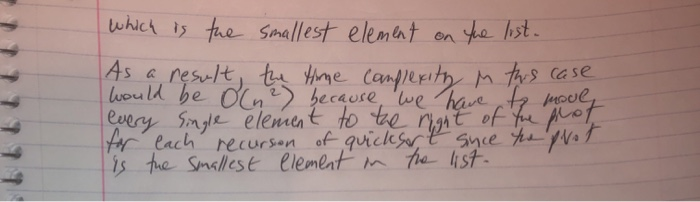 which is the smallest element on the list.
As a result, the time complexity in this case
would be O(n²) because we have to move
every single element to the right of the pivot
for each recursion of quicksort since the pivot
is the smallest element in the list.